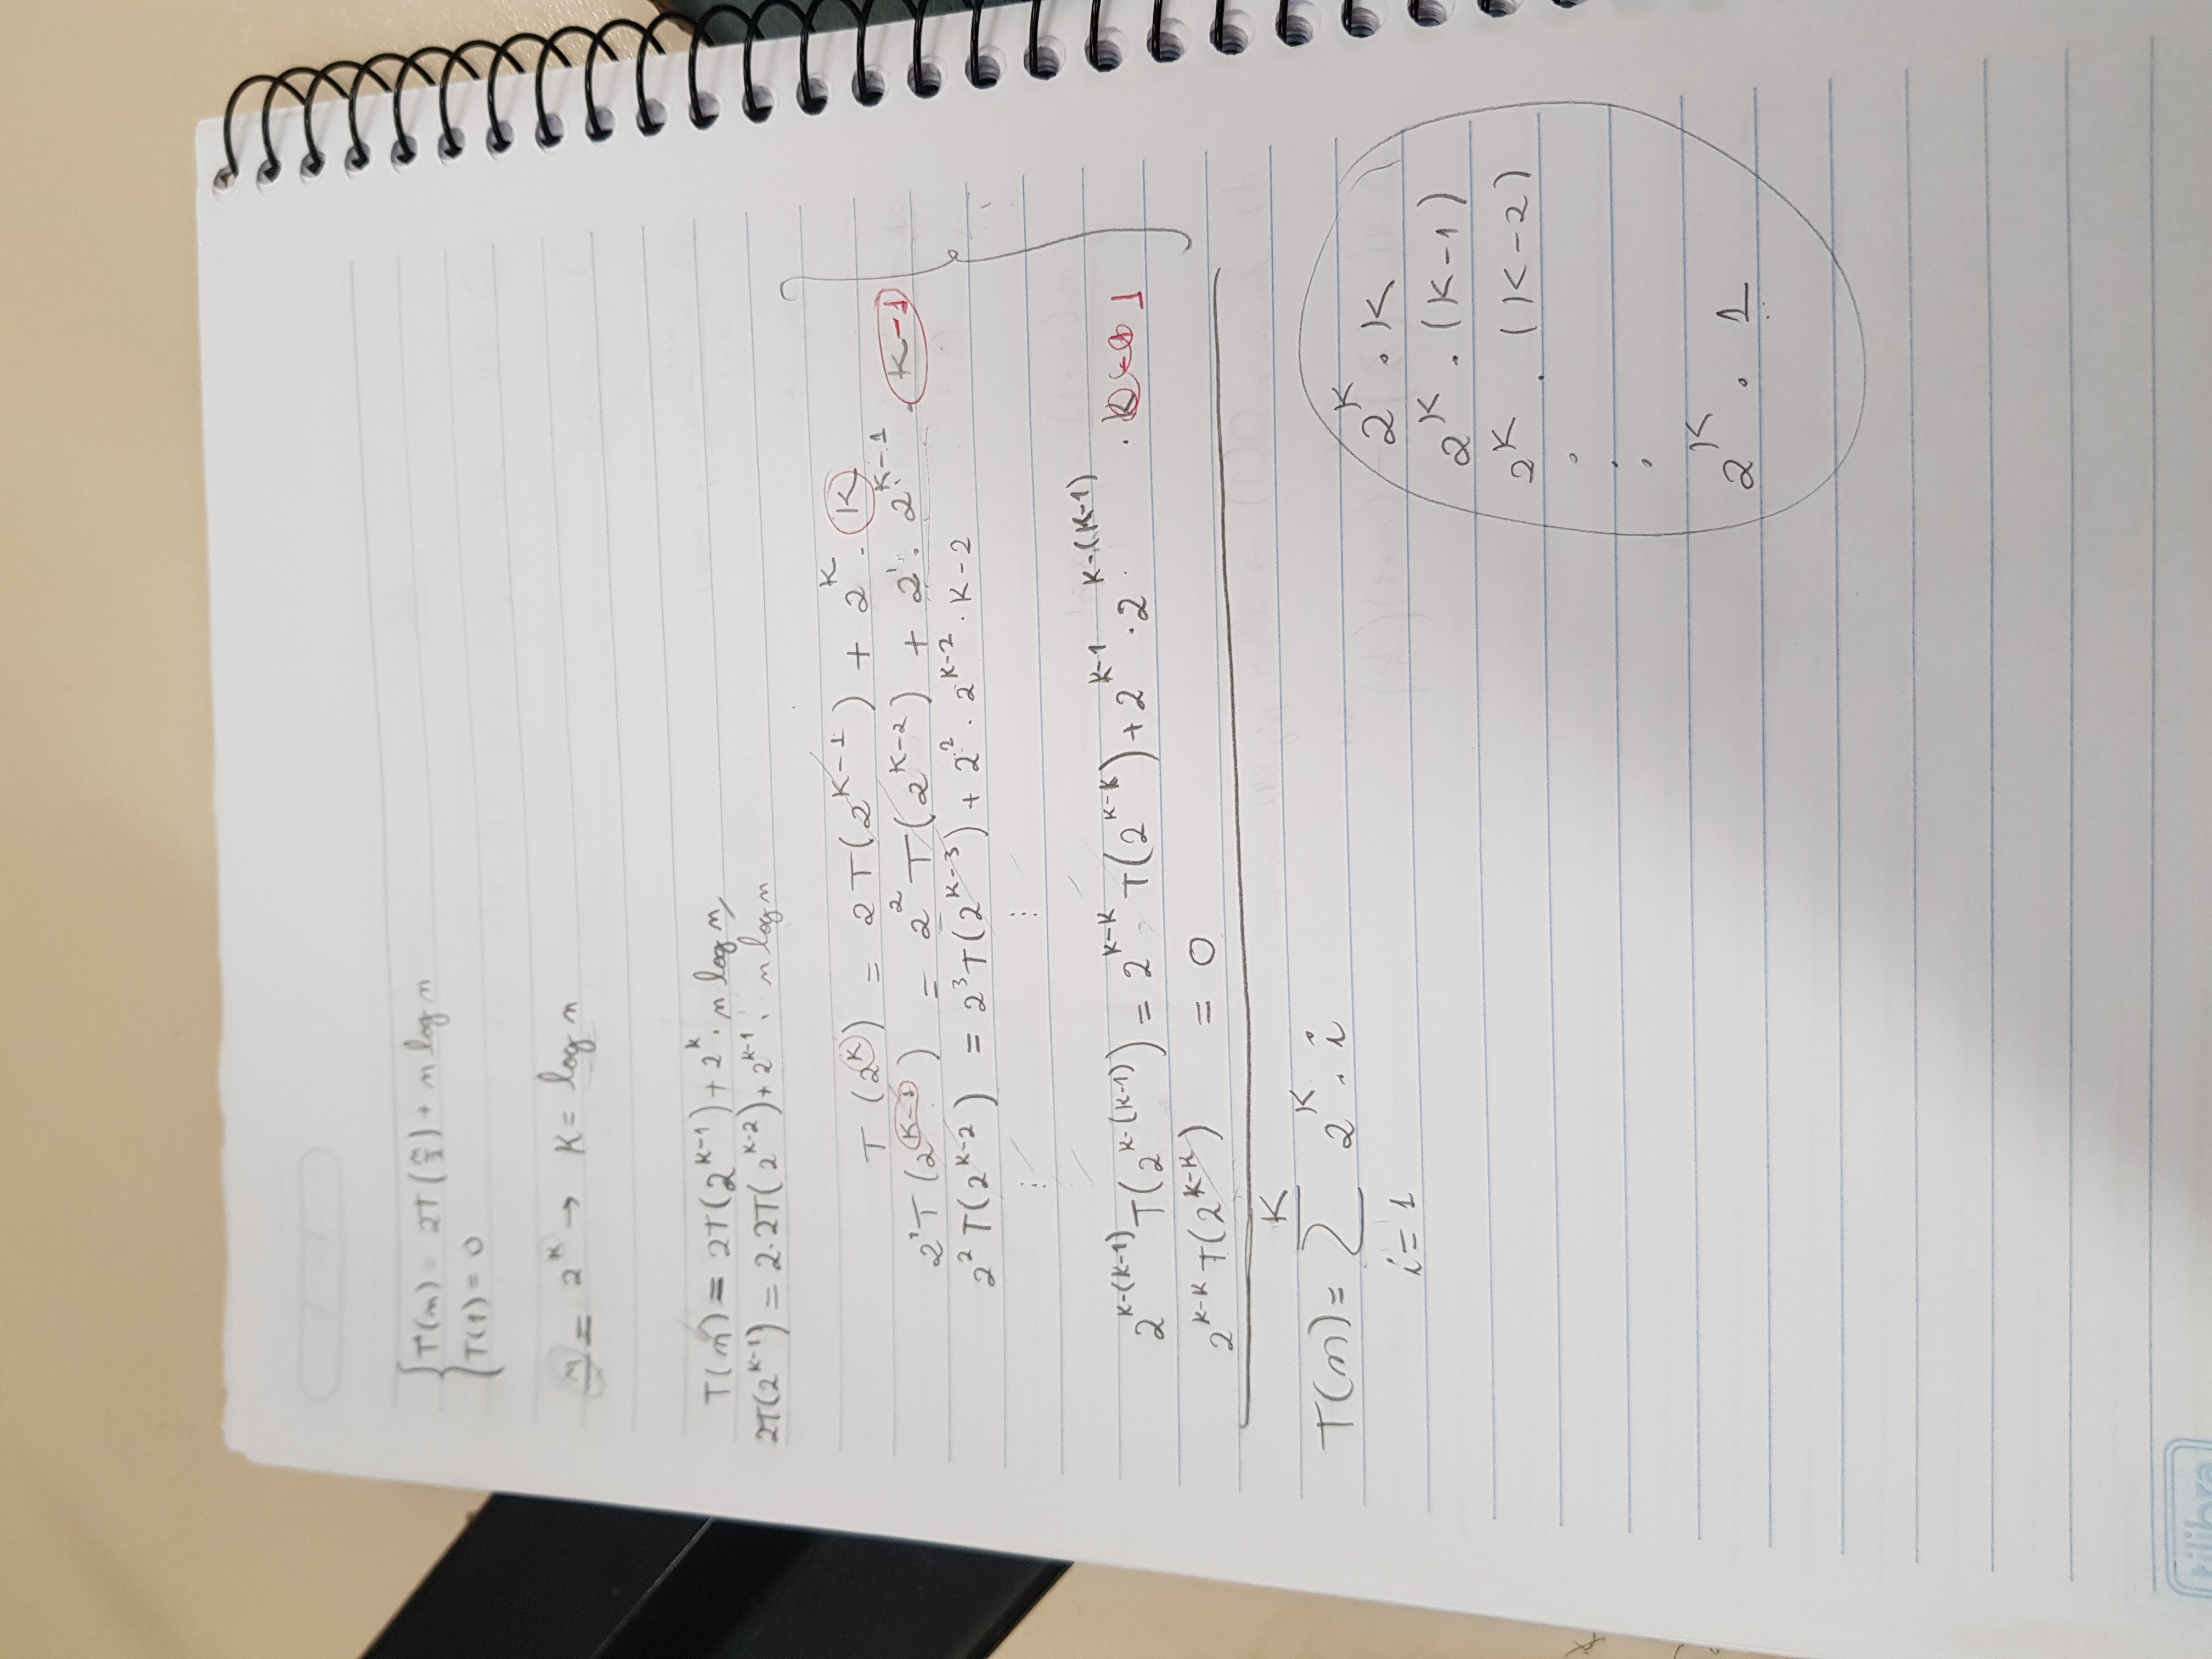 T(n) = 2T(n/2) + n log n
T(1) = 0
n = 2^k → K = log n
T(n) = 2T(2^{k-1}) + 2^k · n log n
2T(2^{k-1}) = 2·2T(2^{k-2}) + 2^{k-1} · n log n
T(2^K) = 2T(2^{K-1}) + 2^K · K
2^1 T(2^{K-1}) = 2^2 T(2^{K-2}) + 2^1 · 2^{K-1} · K-1
2^2 T(2^{K-2}) = 2^3 T(2^{K-3}) + 2^2 · 2^{K-2} · K-2
⋮ ⋮
2^{K-(K-1)} T(2^{K-(K-1)}) = 2^{K-K} T(2^{K-K}) + 2^{K-1} · 2^{K-(K-1)} · 1
2^{K-K} T(2^{K-K}) = 0
T(n) = ∑_{i=1}^{K} 2^K · i
2^K · K
2^K · (K-1)
2^K · (K-2)
⋮
2^K · 1
tilibra